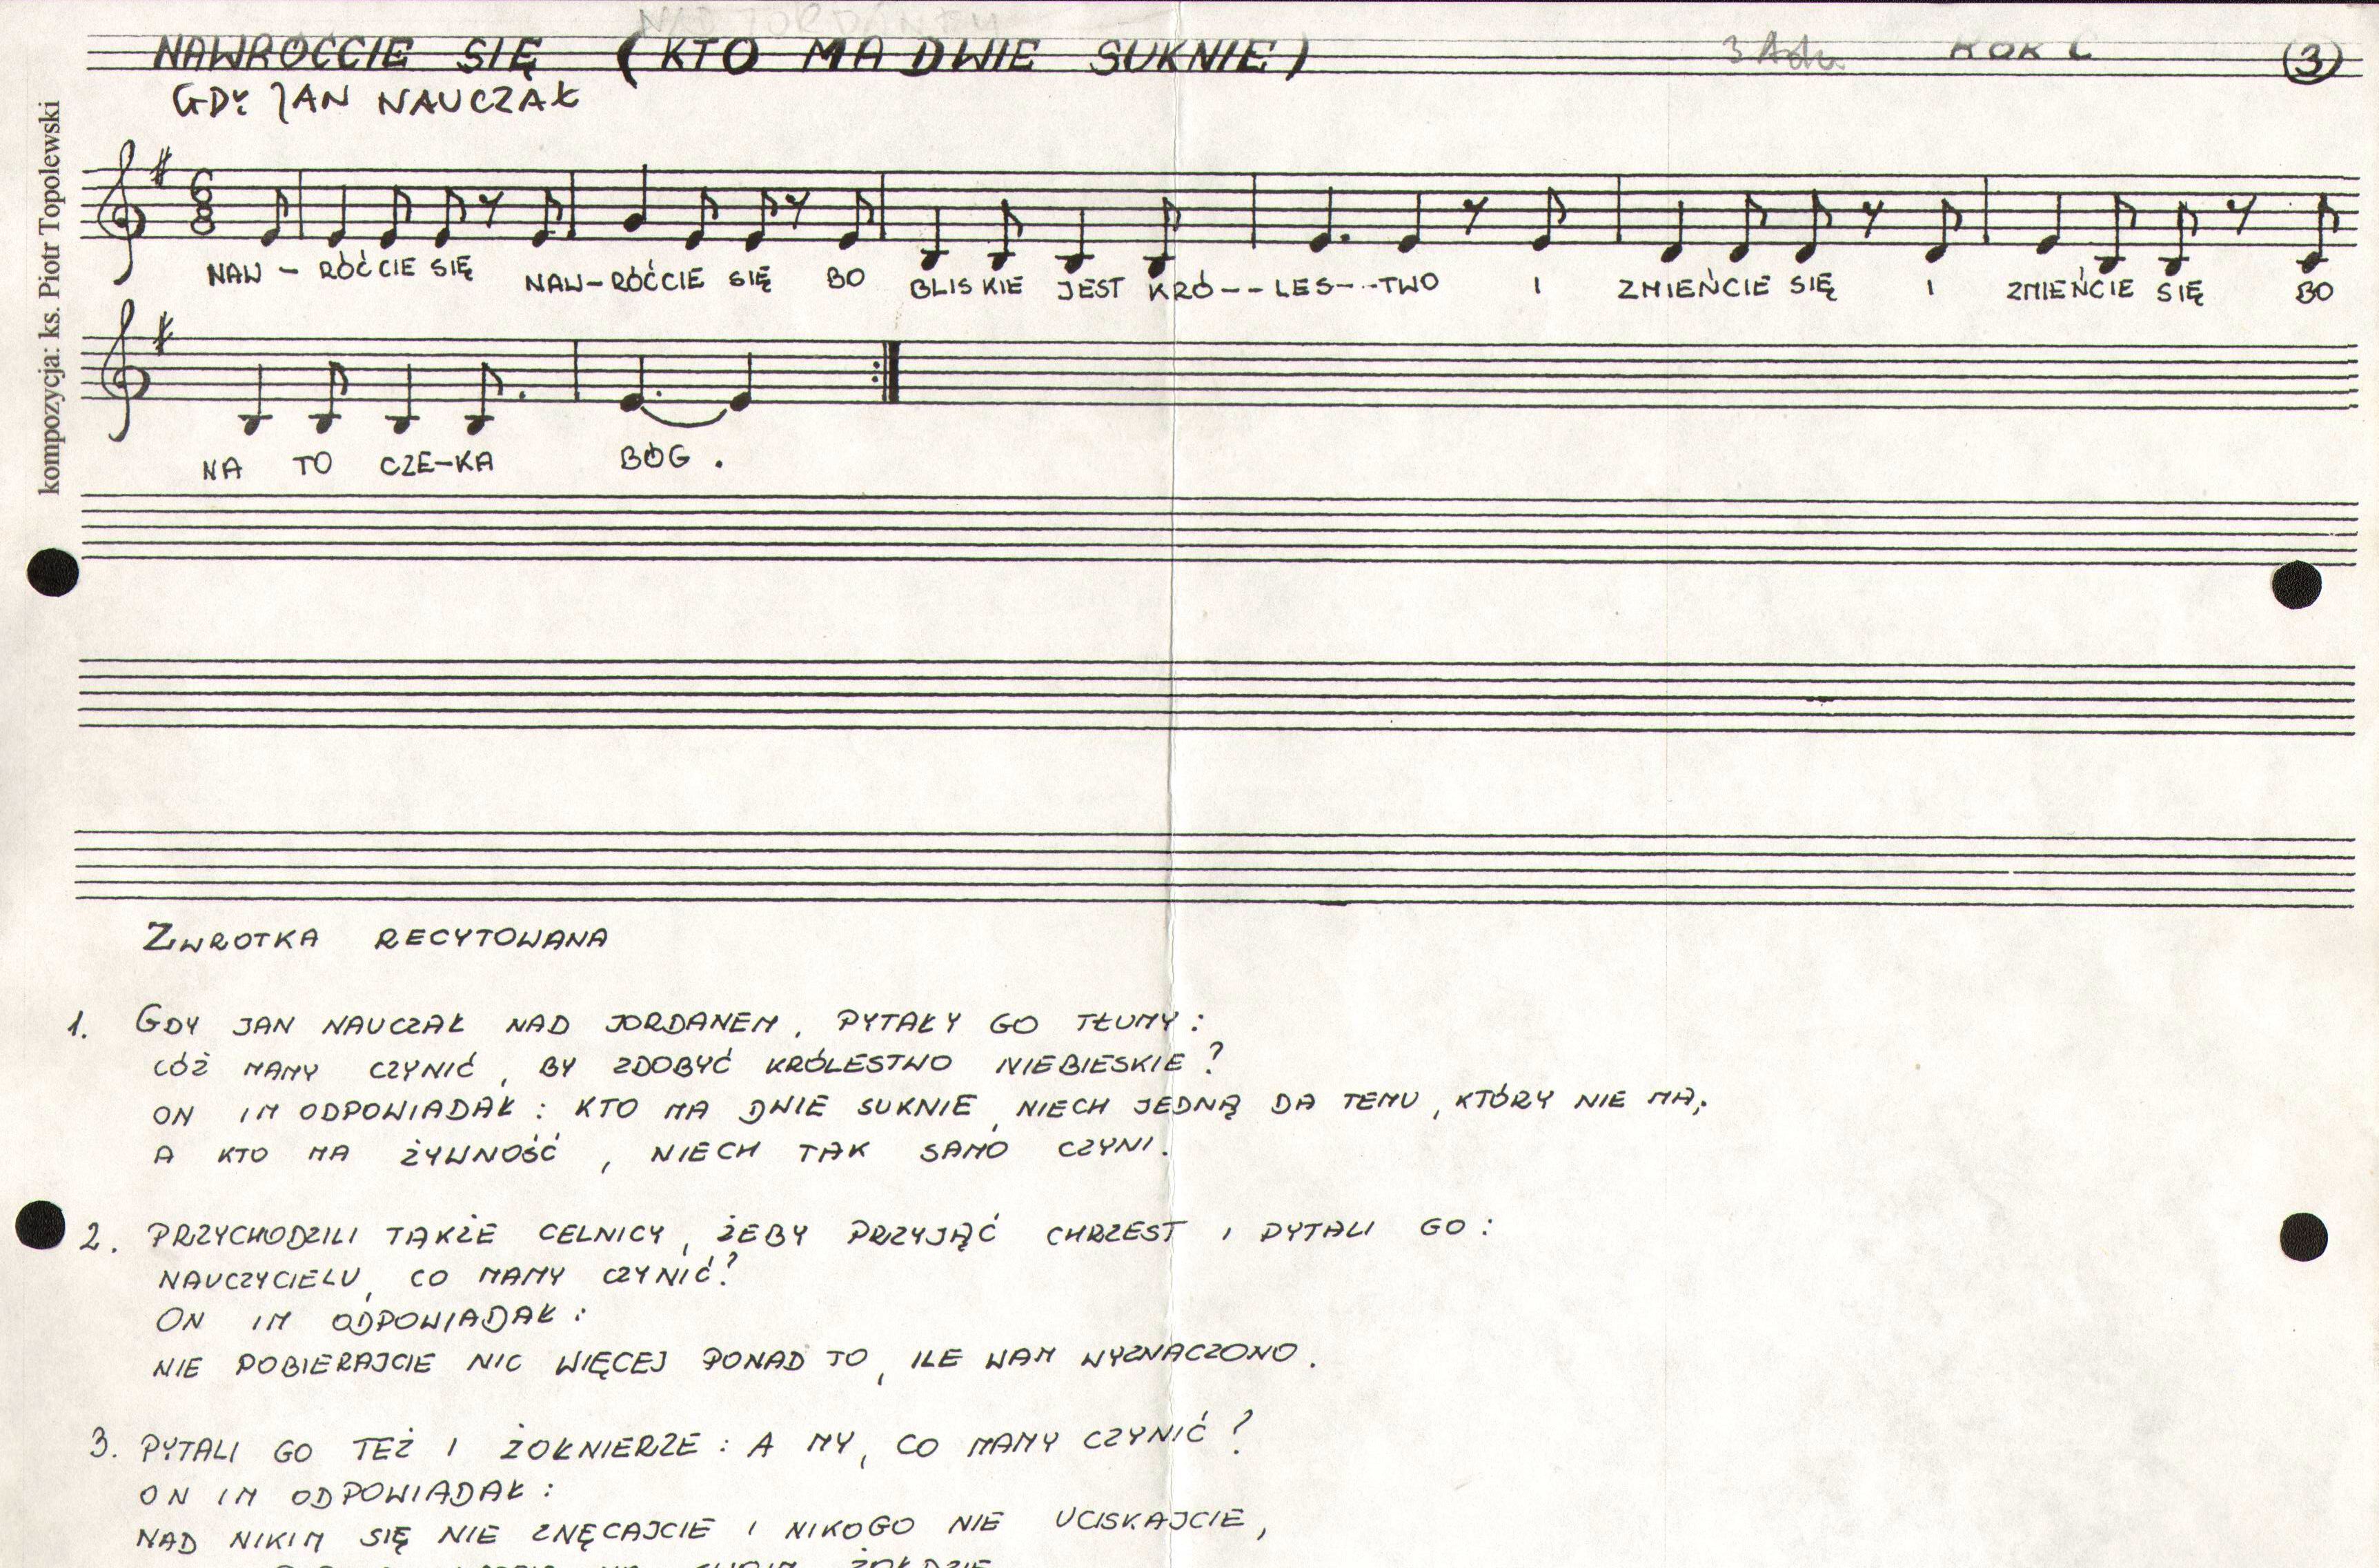 NAWRÓĆCIE SIĘ (KTO MA DWIE SUKNIE) 3 Adw. ROK C (3)
GDY JAN NAUCZAŁ
kompozycja: ks. Piotr Topolewski
6
8
NAW - RÓĆCIE SIĘ NAW-RÓĆCIE SIĘ BO BLISKIE JEST KRÓ--LES---TWO I ZMIEŃCIE SIĘ I ZMIEŃCIE SIĘ BO
NA TO CZE-KA BÓG.
ZWROTKA RECYTOWANA
1. GDY JAN NAUCZAŁ NAD JORDANEM, PYTAŁY GO TŁUMY:
CÓŻ MAMY CZYNIĆ, BY ZDOBYĆ KRÓLESTWO NIEBIESKIE?
ON IM ODPOWIADAŁ: KTO MA DWIE SUKNIE, NIECH JEDNĄ DA TEMU, KTÓRY NIE MA;
A KTO MA ŻYWNOŚĆ, NIECH TAK SAMO CZYNI.
2. PRZYCHODZILI TAKŻE CELNICY, ŻEBY PRZYJĄĆ CHRZEST I PYTALI GO:
NAUCZYCIELU, CO MAMY CZYNIĆ?
ON IM ODPOWIADAŁ:
NIE POBIERAJCIE NIC WIĘCEJ PONAD TO, ILE WAM WYZNACZONO.
3. PYTALI GO TEŻ I ŻOŁNIERZE: A MY, CO MAMY CZYNIĆ?
ON IM ODPOWIADAŁ:
NAD NIKIM SIĘ NIE ZNĘCAJCIE I NIKOGO NIE UCISKAJCIE,